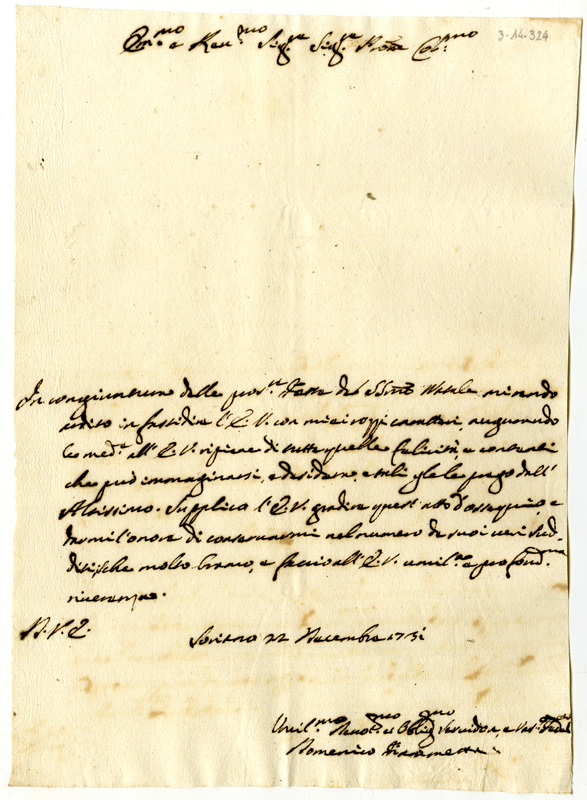 3-14-324
Em.mo e Reu.mo Sig.re Sig.re Prone Col.mo
In congiuntura delle pros.me Feste del SSmo Natale mi rendo
ardito in fastidire l'E.V. con miei rozzi caratteri, augurando
le med.e all'E.V. ripiene di tutte quelle felicità, e contenti
che può immaginarsi, e desiderare, e tali gle le prego dall'
Altissimo. Supplico l'E.V. gradire quest'atto d'ossequio, e
darmi l'onore di conservarmi nel numero de suoi veri Sud-
diti, che molto bramo, e faccio all'E.V. umil.ma e profond.ma
riverenza.
D.V.E.
Soriano 22 Decembre 1731
Umil.mo Deuo.mo et Obblig.mo Servidore, e Vas.
Domenico